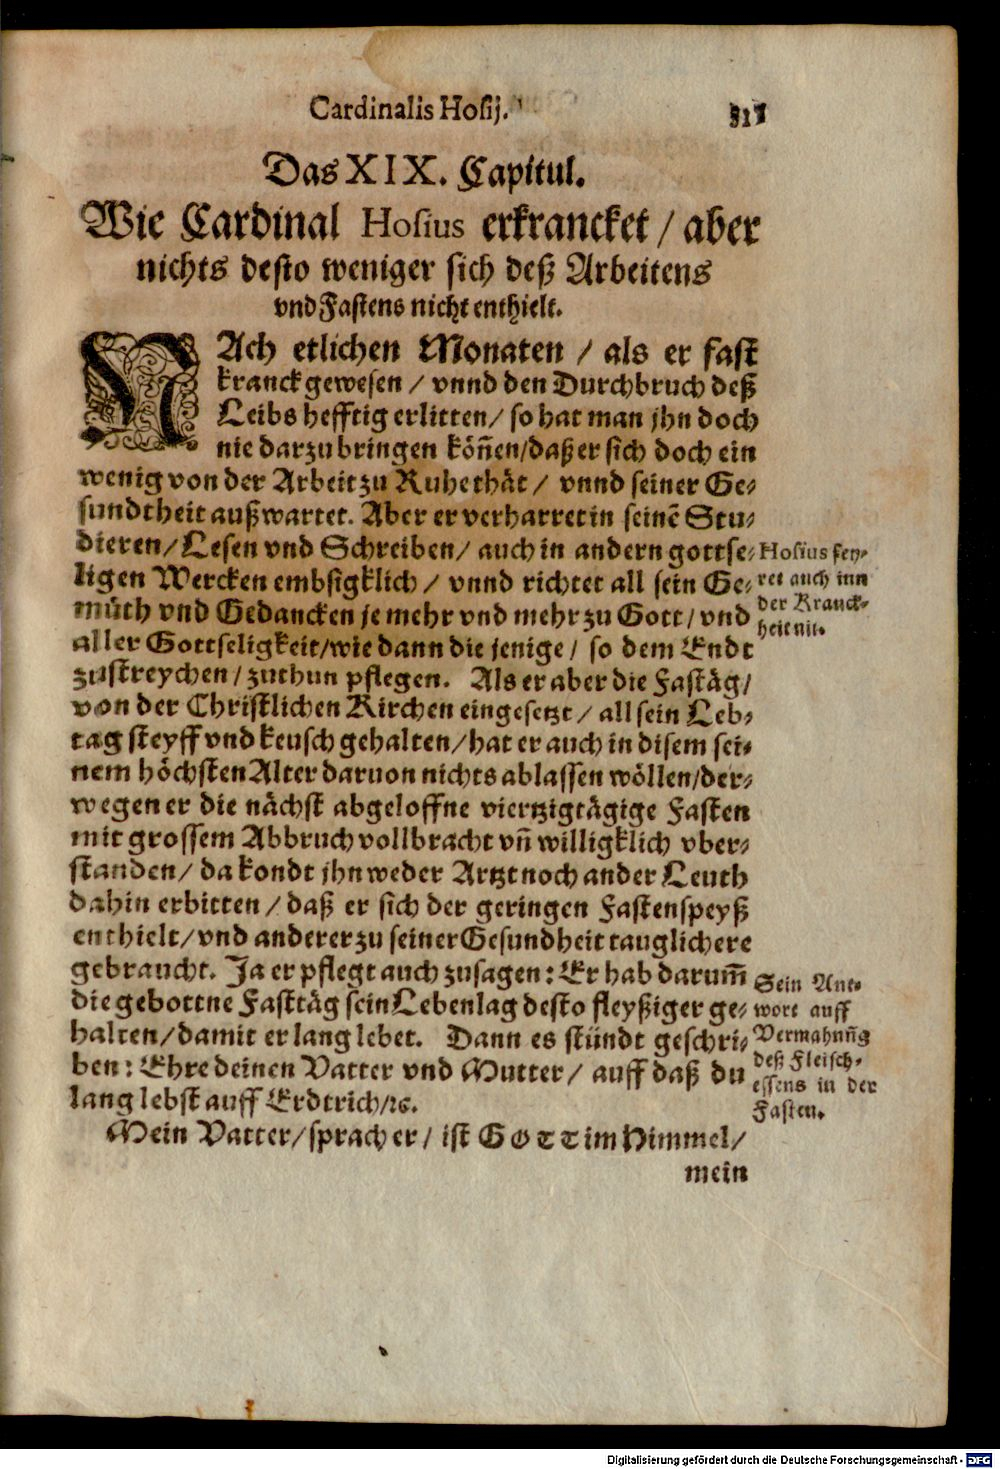 Cardinalis Hosij.
Das XIX. Capitul.
Wie Cardinal Hosius erkrancket / aber
nichts desto weniger sich deß Arbeitens
vnd Fastens nicht enthielt.
NAch etlichen Monaten / als er fast
kranck gewesen / vnnd den Durchbruch deß
Leibs hefftig erlitten / so hat man jhn doch
nie darzu bringen köñen / daß er sich doch ein
wenig von der Arbeit zu Ruhe thät / vnnd seiner Ge-
sundtheit außwartet. Aber er verharret in seinẽ Stu-
dieren / Lesen vnd Schreiben / auch in andern gottse-
ligen Wercken embsigklich / vnnd richtet all sein Ge-
müth vnd Gedancken je mehr vnd mehr zu Gott / vnd
aller Gottseligkeit / wie dann die jenige / so dem Endt
zustreychen / zuthun pflegen. Als er aber die Fastäg /
von der Christlichen Kirchen eingesetzt / all sein Leb-
tag steyff vnd keusch gehalten / hat er auch in disem sei-
nem höchsten Alter daruon nichts ablassen wöllen / der-
wegen er die nächst abgeloffne viertzigtägige Fasten
mit grossem Abbruch vollbracht vñ willigklich vber-
standen / da kondt jhn weder Artzt noch ander Leuth
dahin erbitten / daß er sich der geringen Fastenspeyß
enthielt / vnd anderer zu seiner Gesundheit tauglichere
gebraucht. Ja er pflegt auch zusagen: Er hab darum̃
die gebottne Fasttäg sein Lebenlag desto fleyßiger ge-
halten / damit er lang lebet. Dann es stündt geschri-
ben: Ehre deinen Vatter vnd Mutter / auff daß du
lang lebst auff Erdtrich / ꝛc.
Mein Vatter / sprach er / ist GOTT im Himmel /
mein
Hosius fey-
ret auch inn
der Kranck-
heit nit.
Sein Ant-
wort auff
Vermahnũg
deß Fleisch-
essens in der
Fasten.
Digitalisierung gefördert durch die Deutsche Forschungsgemeinschaft - DFG